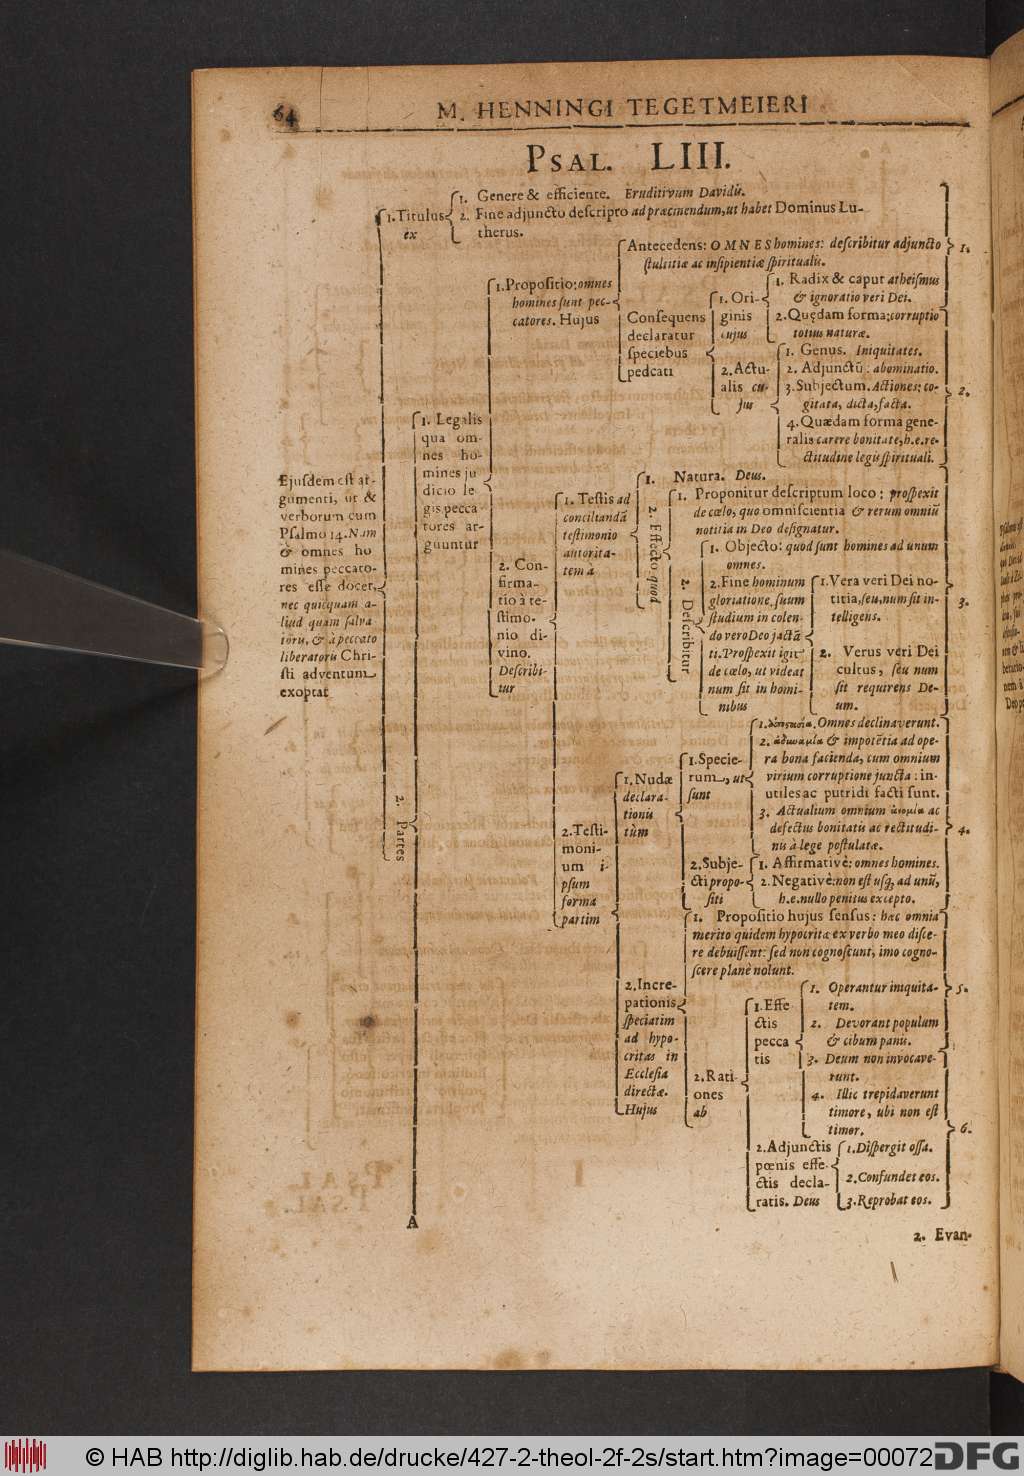 64
M. HENNINGI TEGETMEIERI
PSAL. LIII.
Ejusdem est ar-
gumenti, ut &
verborum cum
Psalmo 14. Nam
& omnes ho
mines peccato-
res esse docet,
nec quicquam a-
liud quam salva
toru, & à peccato
liberatoru Chri-
sti adventum
exoptat
1. Titulus
ex
1. Genere & efficiente. Eruditivum Davidis.
2. Fine adjuncto descripto ad præcinendum, ut habet Dominus Lu-
therus.
2. Partes
1. Legalis
qua om-
nes ho-
mines ju
dicio le
gis pecca
tores ar-
guuntur
1. Propositio: omnes
homines sunt pec-
catores. Hujus
Antecedens: OMNES homines: describitur adjuncto
stultitiæ ac insipientiæ spiritualis.
Consequens
declaratur
speciebus
peccati
1. Ori-
ginis
cujus
1. Radix & caput atheismus
& ignoratio veri Dei.
2. Quędam forma: corruptio
totius naturæ.
2. Actu-
alis cu-
jus
1. Genus. Iniquitates.
2. Adjunctũ: abominatio.
3. Subjectum. Actiones: co-
gitata, dicta, facta.
4. Quædam forma gene-
ralis carere bonitate, h. e. re-
ctitudine legis spirituali.
2. Con-
firma-
tio à te-
stimo-
nio di-
vino.
Describi-
tur
1. Testis ad
conciliandã
testimonio
autorita-
tem à
1. Natura. Deus.
2. Effecto quod
1. Proponitur descriptum loco: prospexit
de cœlo, quo omniscientia & rerum omniũ
notitia in Deo designatur.
2. Describitur
1. Objecto: quod sunt homines ad unum
omnes.
2. Fine hominum
gloriatione, suum
studium in colen-
do vero Deo jactã
ti. Prospexit igit
de cœlo, ut videat
num sit in homi-
nibus
1. Vera veri Dei no-
titia, seu, num sit in-
telligens.
2. Verus veri Dei
cultus, seu num
sit requirens De-
um.
2. Testi-
moni-
um i-
psum
forma
partim
1. Nudæ
declara-
tionis
tùm
1. Specie-
rum, ut
sunt
1. Omnes declinaverunt.
2. ἀδυναμία & impotẽtia ad ope-
ra bona facienda, cum omnium
virium corruptione juncta: in-
utiles ac putridi facti sunt.
3. Actualium omnium ἀνομία ac
defectus bonitatis ac rectitudi-
nis à lege postulatæ.
2. Subje-
cti propo-
siti
1. Affirmativè: omnes homines.
2. Negativè: non est usq, ad unũ,
h. e. nullo penitus excepto.
2. Incre-
pationis
speciatim
ad hypo-
critas in
Ecclesia
directæ.
Hujus
1. Propositio hujus sensus: hæc omnia
merito quidem hypocritæ ex verbo meo disce-
re debuissent: sed non cognoscunt, imo cogno-
scere planè nolunt.
2. Rati-
ones
ab
1. Effe
ctis
pecca
tis
1. Operantur iniquita-
tem.
2. Devorant populum
& cibum panis.
3. Deum non invocave-
runt.
4. Illic trepidaverunt
timore, ubi non est
timor.
2. Adjunctis
pœnis effe-
ctis decla-
ratis. Deus
1. Dispergit ossa.
2. Confundet eos.
3. Reprobat eos.
1.
2.
3.
4.
5.
6.
A
2. Evan-
© HAB http://diglib.hab.de/drucke/427-2-theol-2f-2s/start.htm?image=00072
DFG